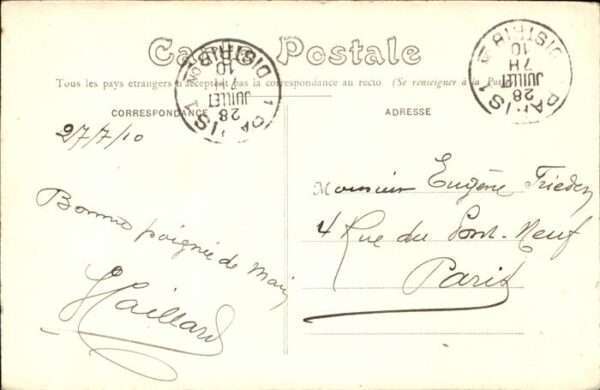 Carte Postale
Tous les pays étrangers n'acceptent pas la correspondance au recto (Se renseigner à la Poste)
CORRESPONDANCE
ADRESSE
PARIS 1 DISTRIB
28
JUILLET
10
PARIS 1 DISTRIB
28
JUILLET
7H
10
27/7/10
Bonne poignée de main
Monsieur Eugène
4 Rue du Pont-Neuf
Paris